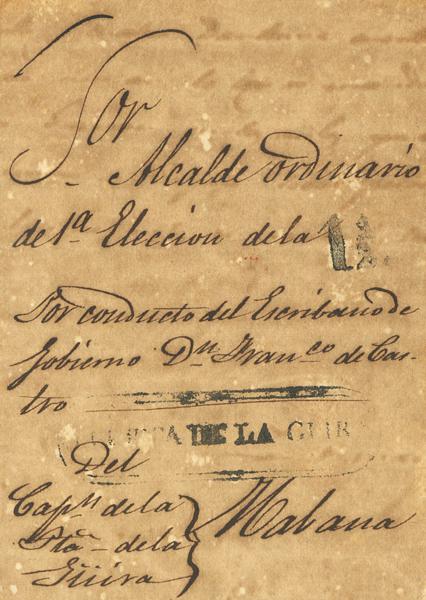 Sor
Alcalde ordinario
de 1ª Eleccion de la
Por conducto del Escribano de
Gobierno Dn Franco de Cas-
tro
DE LA GUIR
Del
Capn de la
Ptda de la
Güira
Habana